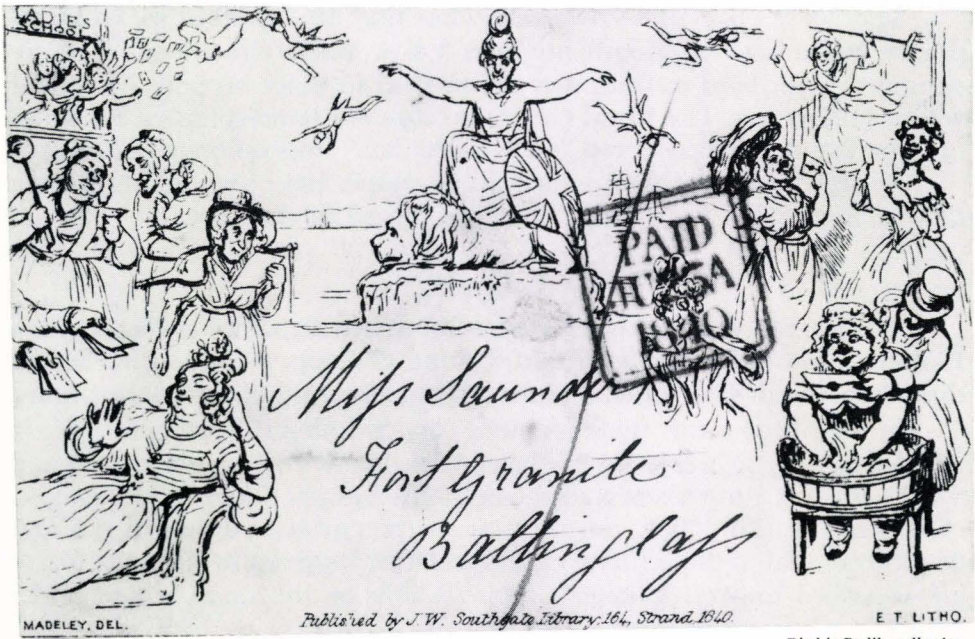 LADIES
SCHOOL
PAID
1840
Miss Saunders
Fort Granite
Baltinglass
MADELEY, DEL.
Published by J.W. Southgate Library, 164, Strand, 1840.
E T. LITHO.